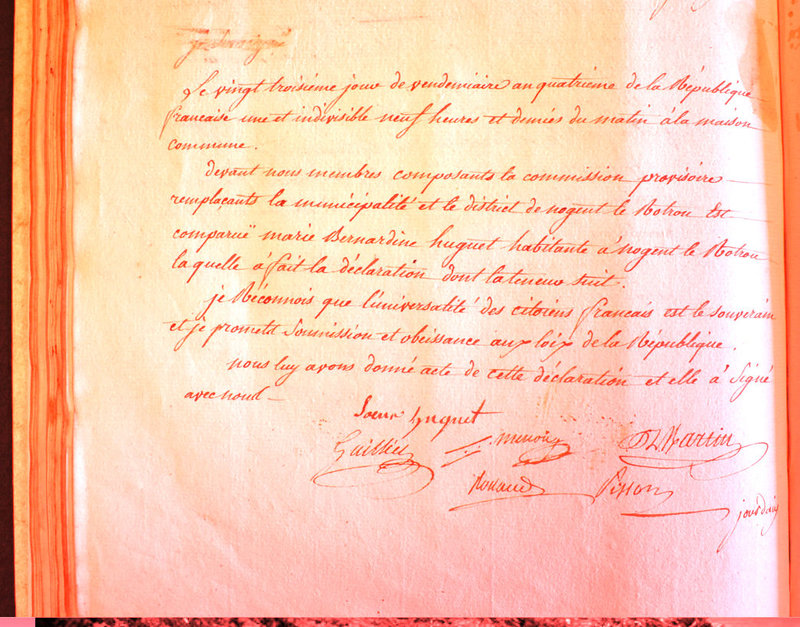 Le vingt troisiéme jour de vendemiaire an quatriéme de la République
francaise une et indivisible neuf heures et demiés du matin á la maison
commune.
devant nous membres composants la commission provisoire
remplaçants la municipalité et le district de nogent le Rotrou Est
comparuë marie Bernardine huguet habitante á nogent le Rotrou
laquelle á fait la déclaration dont la teneur suit.
je Réconnois que l'universalité des citoiens francais est le souverain
et je promets Soumission et obeissance aux loix de la République.
nous luy avons donné acte de cette déclaration et elle á Signé
avec nous
Soeur huguet
DL Martin
Pisson
jourdain